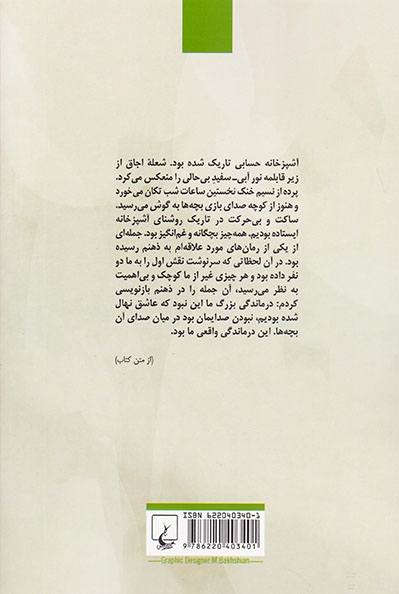 آشپزخانه حسابی تاریک شده بود. شعلهٔ اجاق از
زیر قابلمه نور آبی_سفیدِ بی‌حالی را منعکس می‌کرد.
پرده از نسیم خنک نخستین ساعات شب تکان می‌خورد
و هنوز از کوچه صدای بازی بچه‌ها به گوش می‌رسید.
ساکت و بی‌حرکت در تاریک روشنای آشپزخانه
ایستاده بودیم. همه‌چیز بچگانه و غم‌انگیز بود. جمله‌ای
از یکی از رمان‌های مورد علاقه‌ام به ذهنم رسیده
بود. در آن لحظاتی که سرنوشت نقش اول را به ما دو
نفر داده بود و هر چیزی غیر از ما کوچک و بی‌اهمیت
به نظر می‌رسید، آن جمله را در ذهنم بازنویسی
کردم: درماندگی بزرگ ما این نبود که عاشق نهال
شده بودیم، نبودن صدایمان بود در میان صدای آن
بچه‌ها. این درماندگی واقعی ما بود.
(از متن کتاب)
ISBN 622040340-1
9 786220 403401
Graphic Designer M.Bakhshian